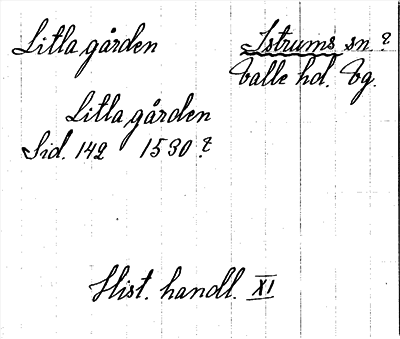 Litla gården
Istrums sn ?
Valle hd. Vg.
Litla gården
Sid. 142 1530 ?
Hist. handl. XI